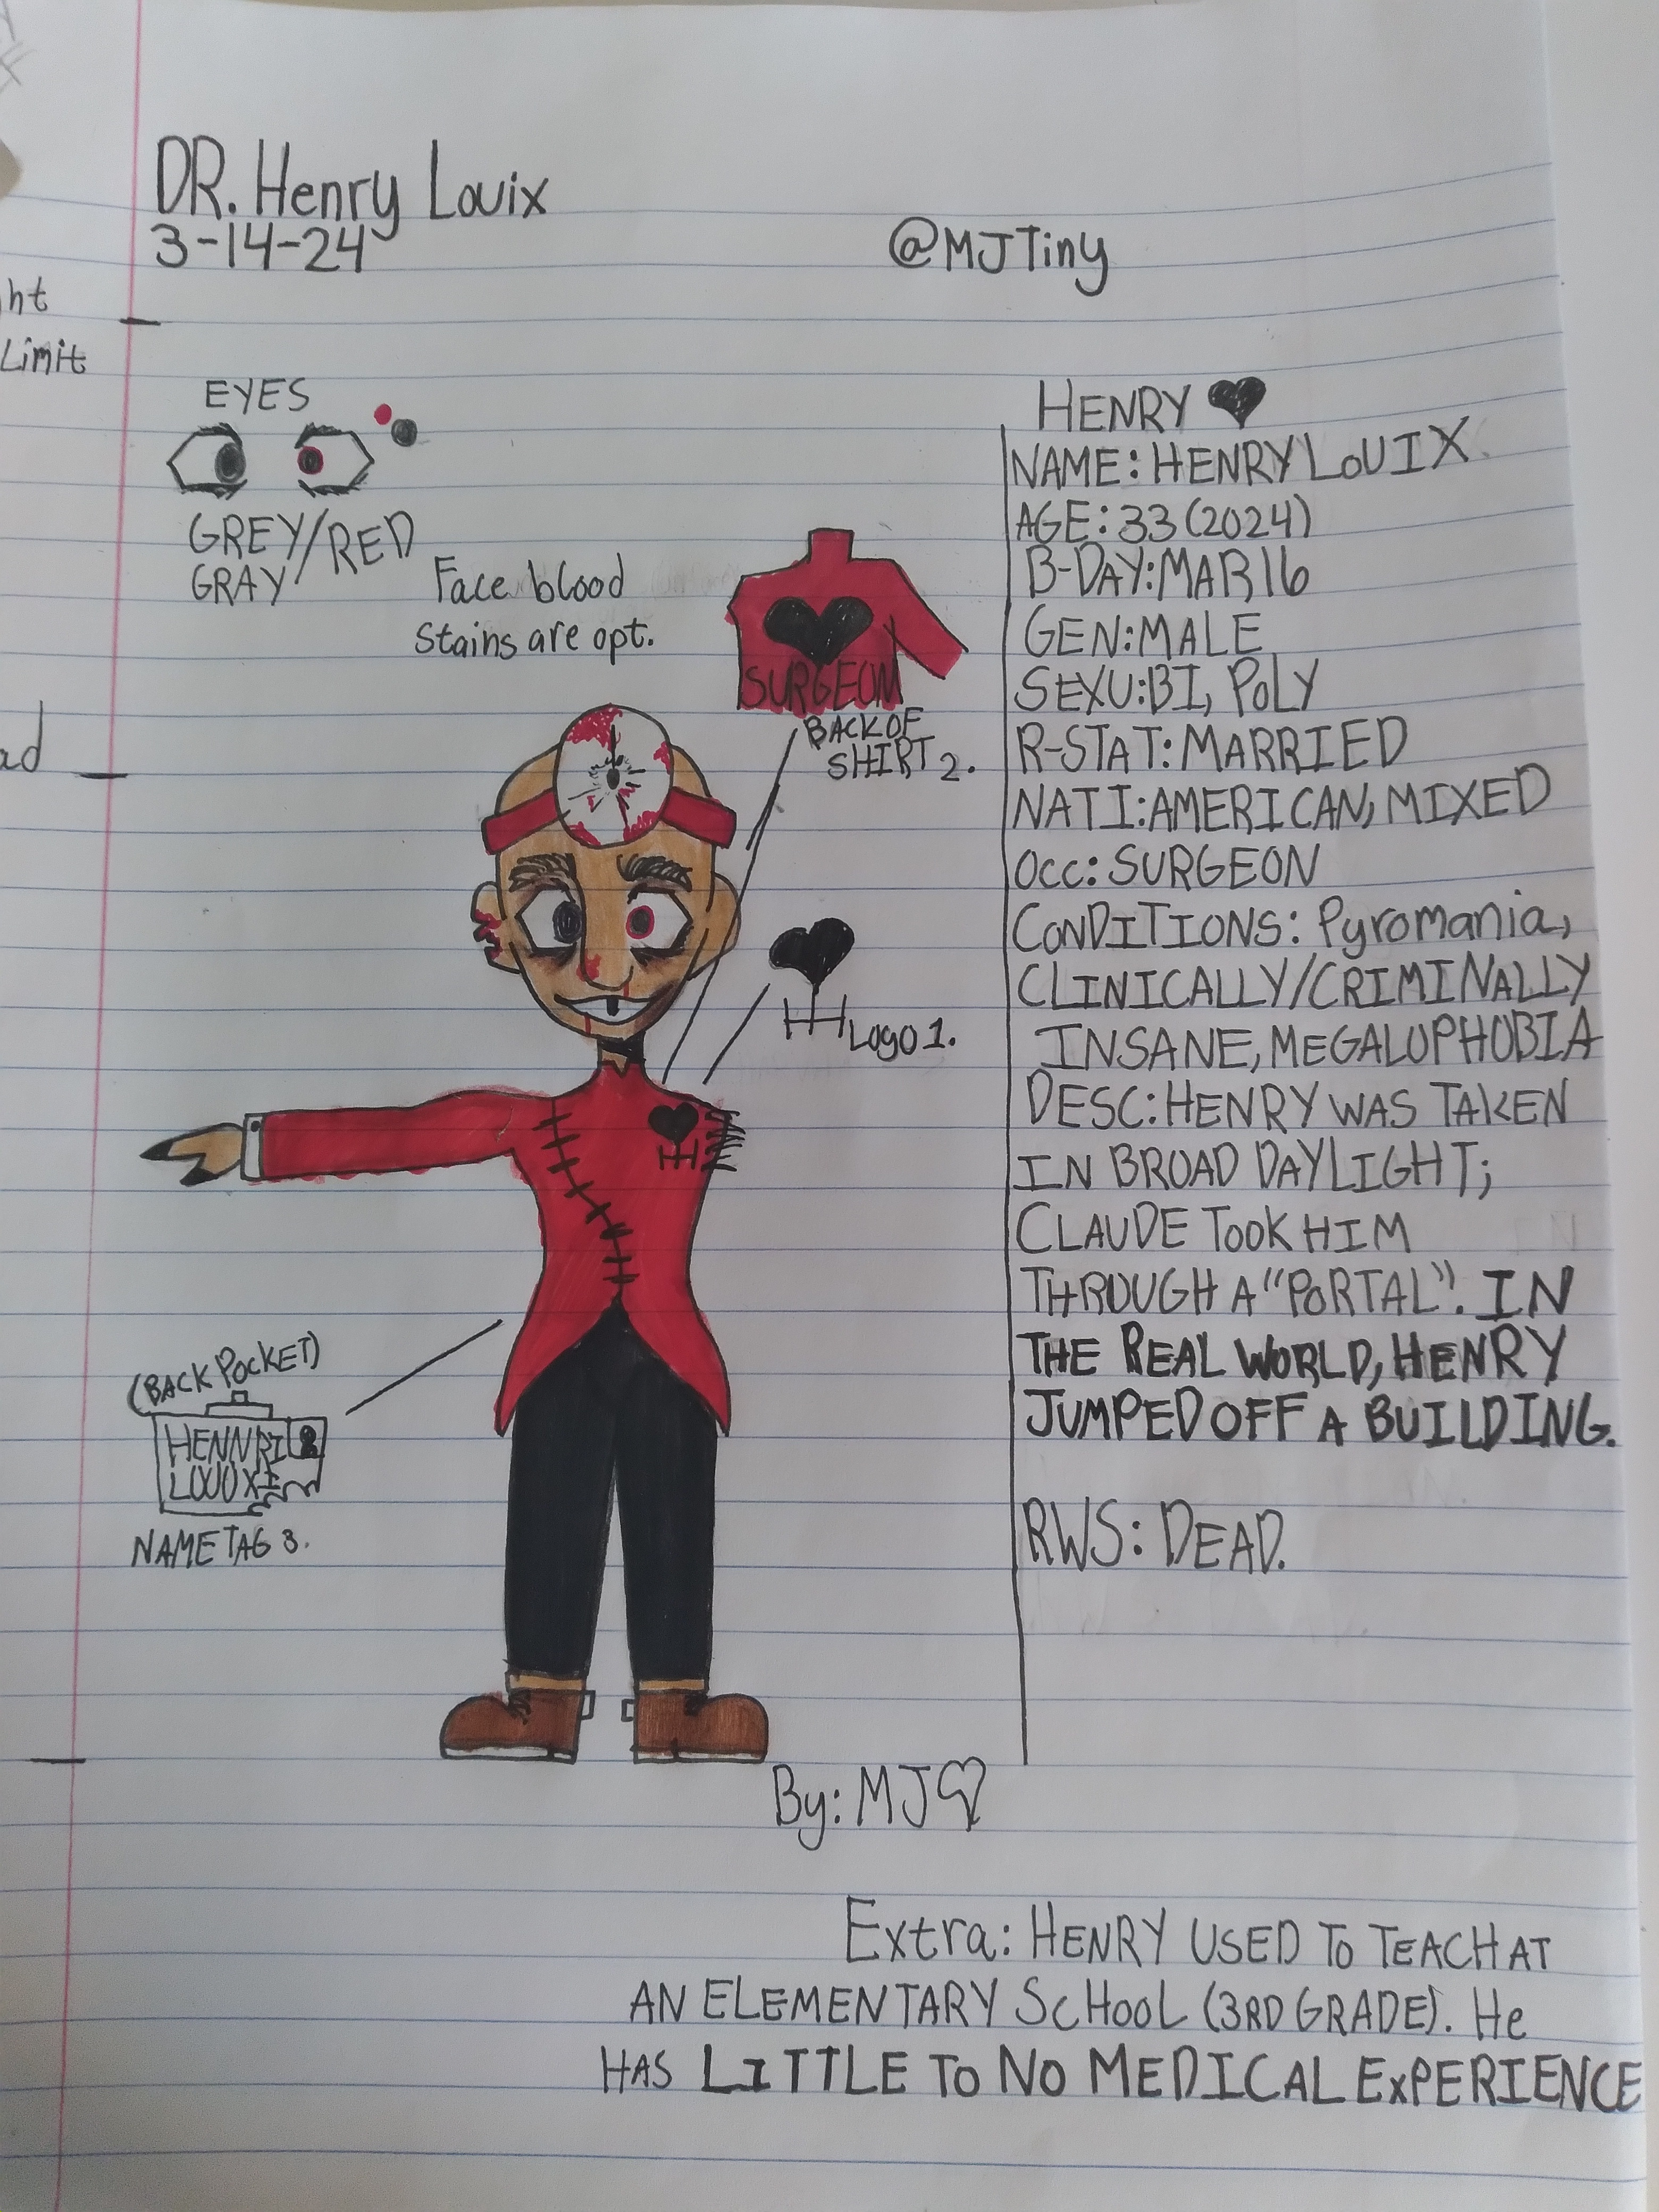 DR. Henry Louix
3-14-24
@MJTiny
ht
Limit
EYES
GREY/RED
GRAY
Face blood
stains are opt.
SURGEON
BACK OF
SHIRT 2.
HH
Logo 1.
HH
(BACK POCKET)
HENNRI
LOUOXI
NAME TAG 3.
ad
HENRY
NAME: HENRY LOUIX.
AGE: 33 (2024)
B-DAY: MAR, 16
GEN: MALE
SEXU: BI, POLY
R-STAT: MARRIED
NATI: AMERICAN, MIXED
OCC: SURGEON
CONDITIONS: Pyromania,
CLINICALLY/CRIMINALLY
INSANE, MEGALOPHOBIA
DESC: HENRY WAS TAKEN
IN BROAD DAYLIGHT;
CLAUDE TOOK HIM
THROUGH A "PORTAL". IN
THE REAL WORLD, HENRY
JUMPED OFF A BUILDING.
RWS: DEAD.
By: MJ
Extra: HENRY USED TO TEACH AT
AN ELEMENTARY SCHOOL (3RD GRADE). He
HAS LITTLE TO NO MEDICAL EXPERIENCE